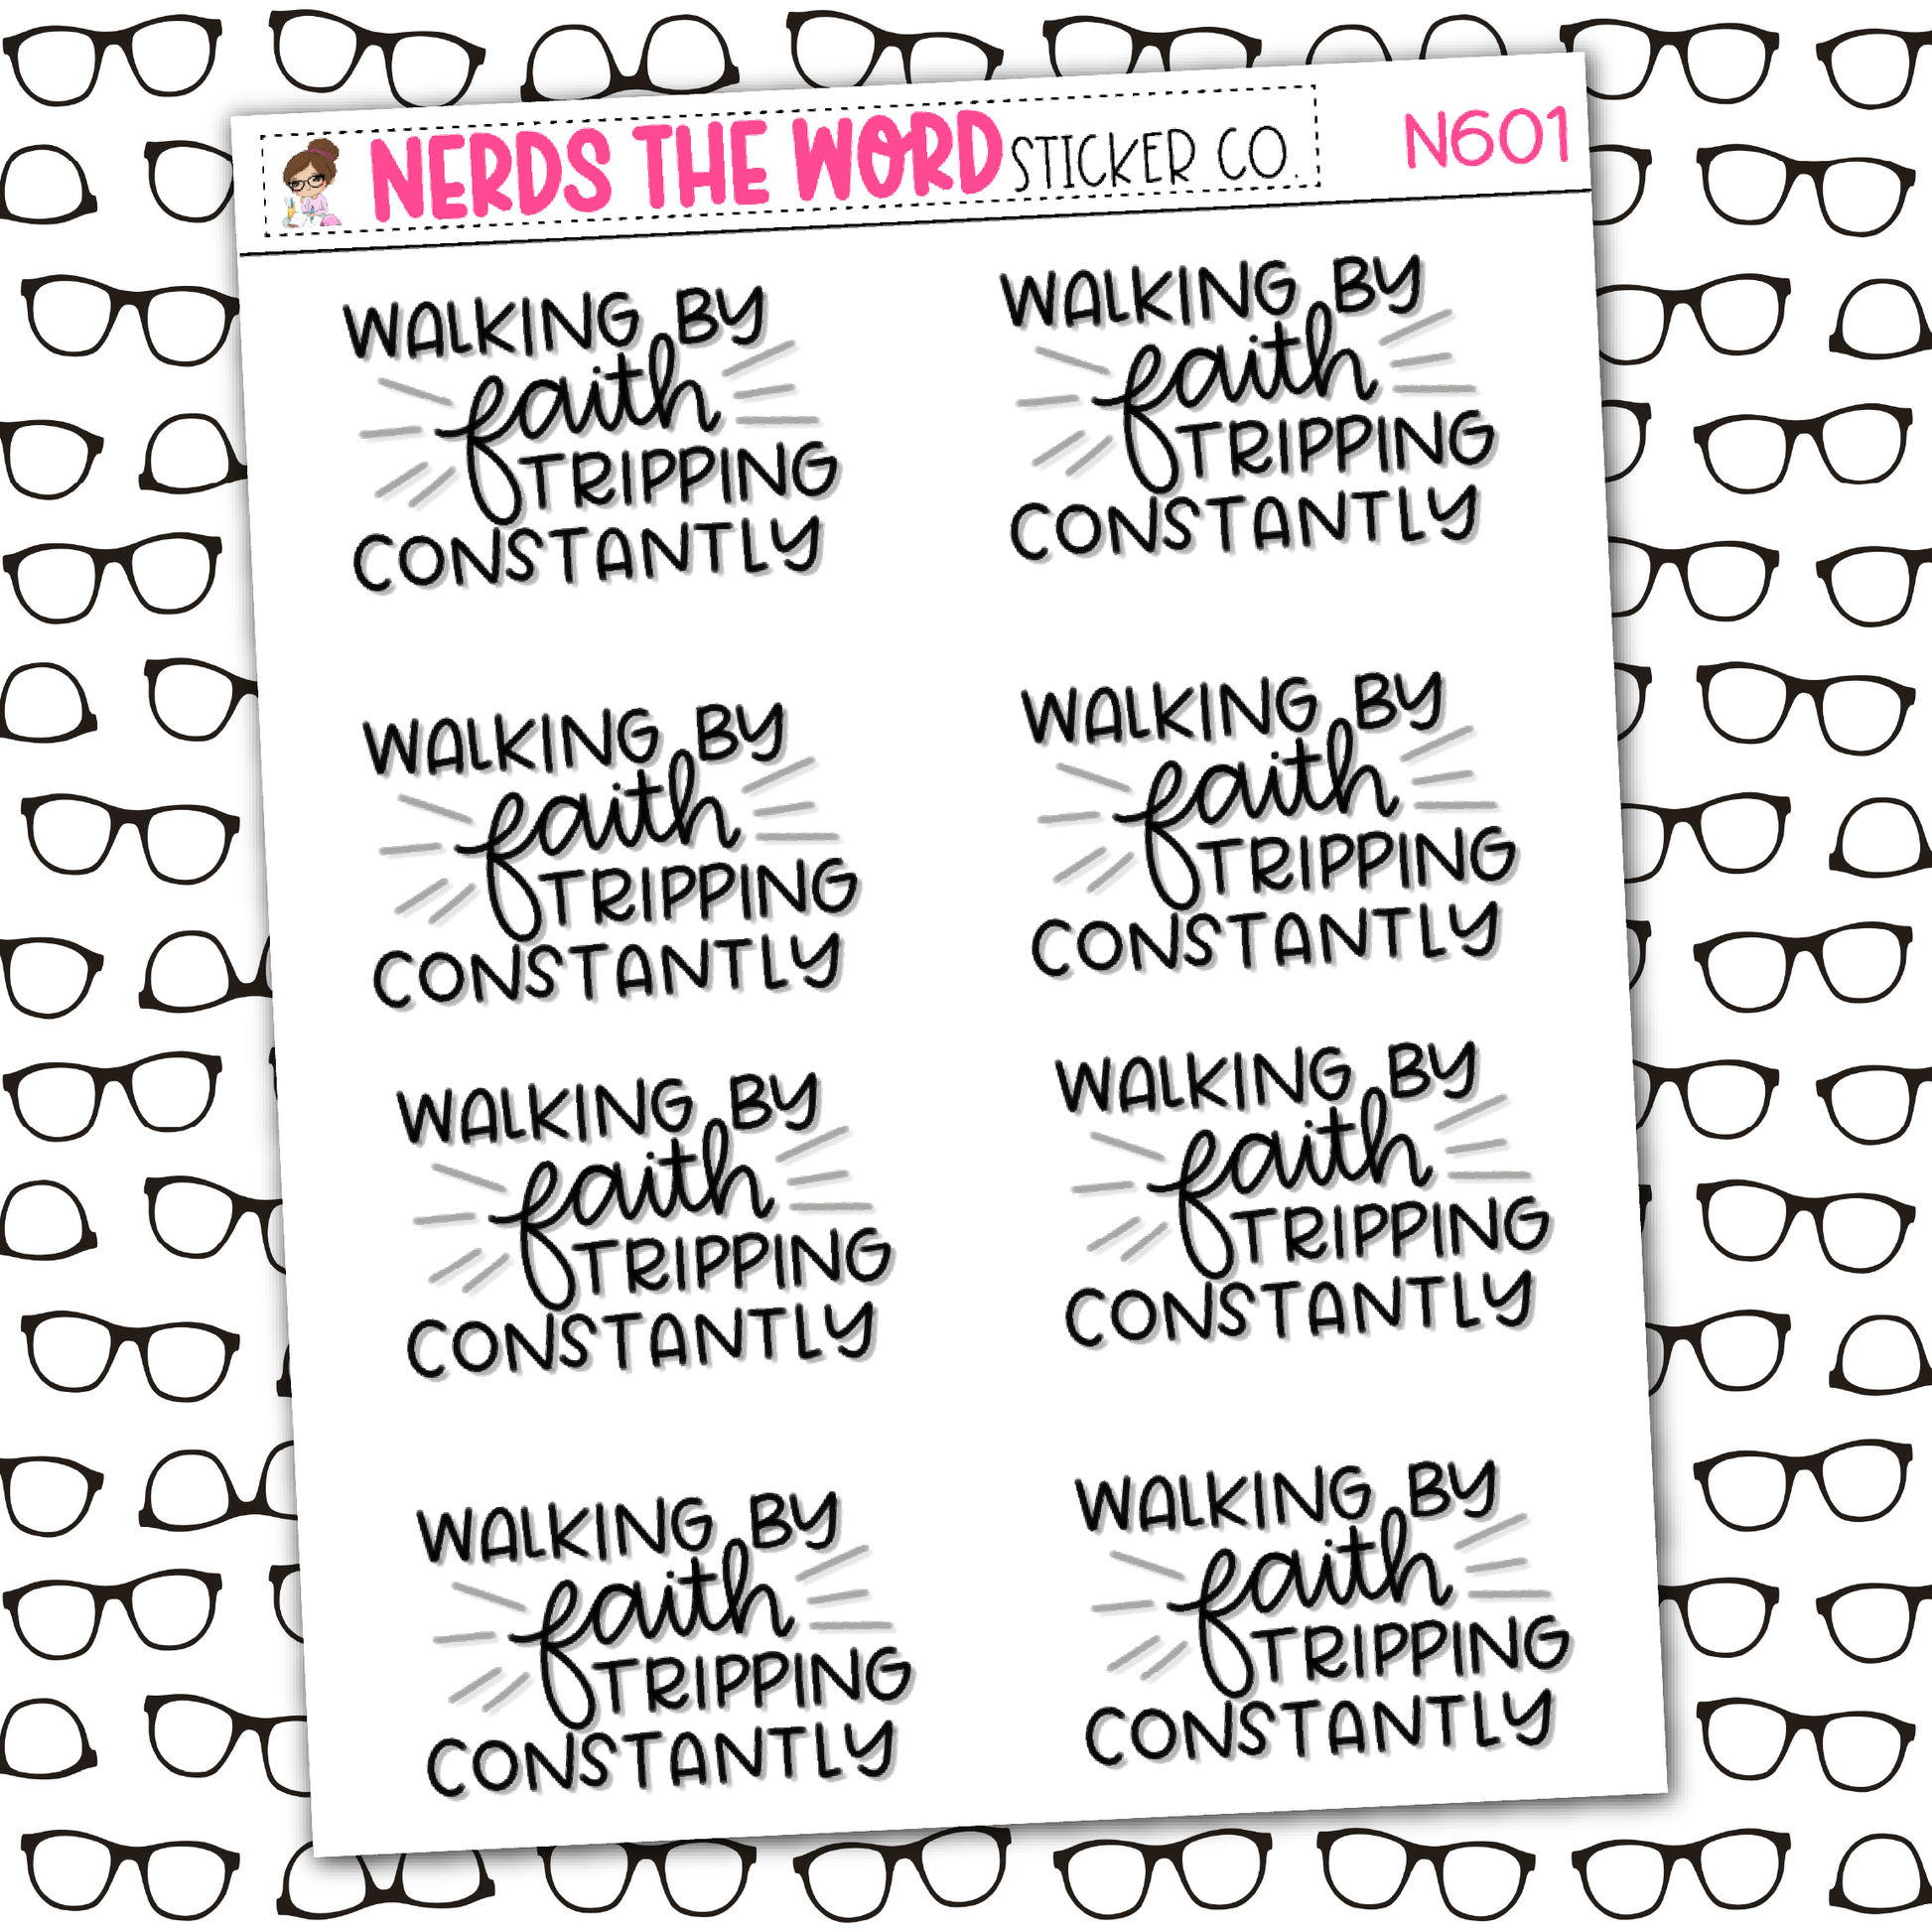 NERDS THE WORD STICKER CO.
N601
WALKING BY
faith
TRIPPING
CONSTANTLY
WALKING BY
faith
TRIPPING
CONSTANTLY
WALKING BY
faith
TRIPPING
CONSTANTLY
WALKING BY
faith
TRIPPING
CONSTANTLY
WALKING BY
faith
TRIPPING
CONSTANTLY
WALKING BY
faith
TRIPPING
CONSTANTLY
WALKING BY
faith
TRIPPING
CONSTANTLY
WALKING BY
faith
TRIPPING
CONSTANTLY